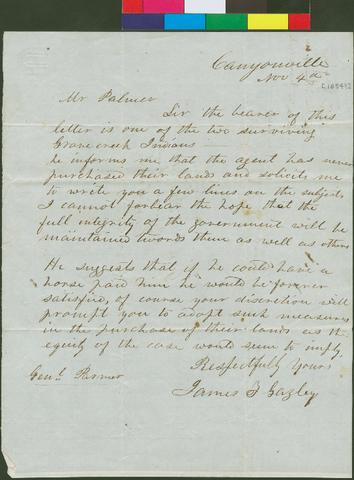 Canyonville
Nov 4th
Mr Palmer
Sir the bearer of this
letter is one of the two surviving
Grave creek Indians
he informs me that the agent has never
purchased their lands and solicits me
to write you a few lines on the subject.
I cannot forbear the hope that the
full integrity of the government will be
maintained towords them as well as others
He suggests that if he could have a
horse paid him he would be forever
satisfied, of course your discretion will
prompt you to adopt such measures
in the purchase of their lands as the
equity of the case would seem to imply.
Respectfully Yours
Genl. Parmer
James F Gazley